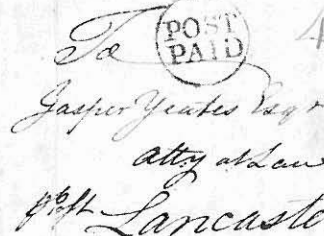 To
POST
PAID
4
Jasper Yeates Esqr
atty at Law
Lancaste